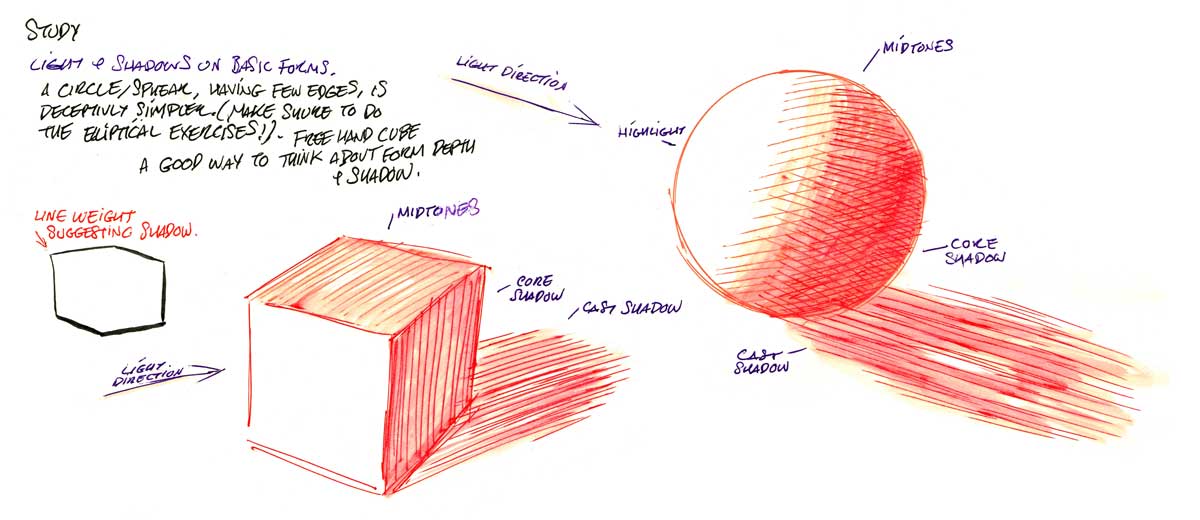 STUDY
LIGHT & SHADOWS ON BASIC FORMS.
A CIRCLE/SPHEAR, HAVING FEW EDGES, IS
DECEPTIVLY SIMPLER. (MAKE SHURE TO DO
THE ELLIPTICAL EXERCISES!). FREE HAND CUBE
A GOOD WAY TO THINK ABOUT FORM DEPTH
& SHADOW.
LINE WEIGHT
SUGGESTING SHADOW.
MIDTONES
CORE
SHADOW
CAST SHADOW
LIGHT
DIRECTION
LIGHT DIRECTION
HIGHLIGHT
MIDTONES
CORE
SHADOW
CAST
SHADOW